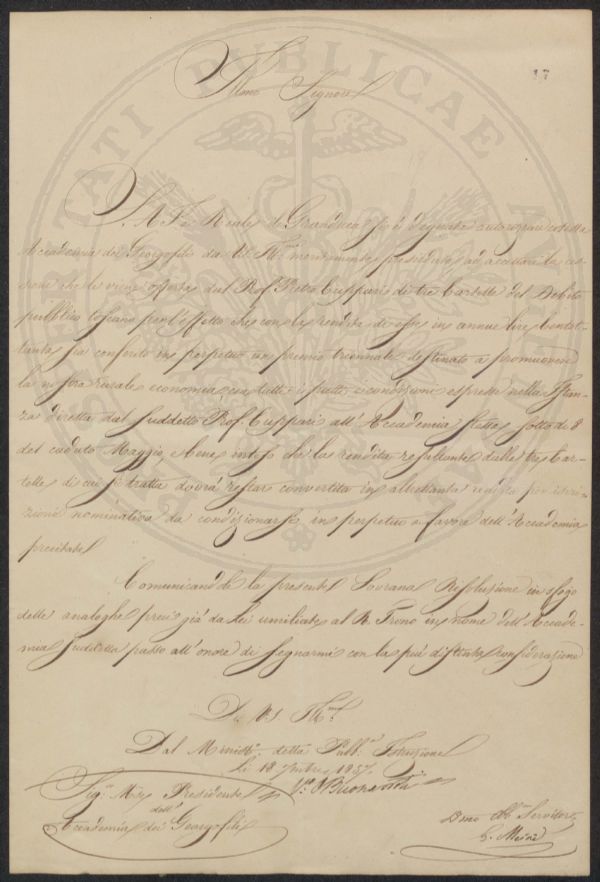 17
Illmo Signore
S. A. I. e Reale il Granduca si è degnato autorizzare cotesta
Accademia dei Georgofili da VS Ill.ma meritamente presieduta ad accettare la ces-
sione che le viene offerta dal Prof. Pietro Cuppari di tre Cartelle del Debito
pubblico toscano per l'effetto che con la rendita di esse in annue lire centot-
tanta sia conferito in perpetuo un premio triennale destinato a promuovere
la nostra rurale economia, con tutti i patti e condizioni espresse nella Istan-
za diretta dal suddetto Prof. Cuppari all'Accademia stessa sotto dì 8
del caduto Maggio, bene inteso che la rendita resultante dalle tre Car-
telle di cui si tratta dovrà restar convertita in altrettanta rendita per iscri-
zione nominativa da condizionarsi in perpetuo a favore dell'Accademia
precitata
Comunicandole la presente Sovrana Risoluzione in sfogo
delle analoghe preci già da Lei umiliate al R. Trono in nome dell'Accade-
mia suddetta passo all'onore di segnarmi con la più distinta considerazione
Di V.S. Ill.ma
Dal Minist.o della Pubb.ca Istruzione
Li 18 1857
V.o Buonarroti
Sig.r Presidente
dell'
Accademia dei Georgofili
Dmo Obb.mo Servitore
LIBERTATI PUBLICAE